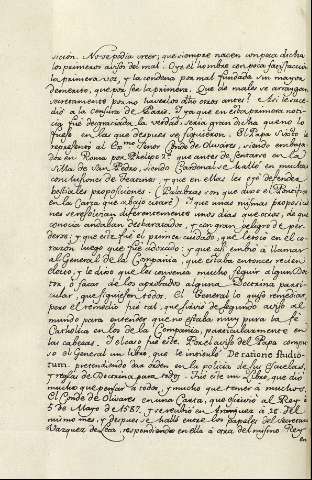 sicion. No se podia creer; que siempre nacen con poca dicha
los primeros avisos del mal. Oye el hombre con poca satisfaccion
la primera voz, y la condena por mal fundada sin mayor
demerito, que por ser la primera. Que de males se arraygan
secretamente por no haverlos oido antes! Asi le suce
dió a la consulta de Paris. Y ya que en esta primera no
cia fue desgraciada la verdad seria gran dicha que no lo
fuese en las que despues se siguieron. El Papa Sixto le
represento al Exmo Señor Conde de Olivares, siendo embaja
dor en Roma por Phelipe 2º que antes de sentarse en la
Silla de San Pedro, siendo Cardenal se halló en muchas
conclusiones de Teatinos, y que en ellas les oyó defender
bestiales proposiciones. (Palabras son que dixo el Pontifice
en la Carta que abajo citaré) Y que unas mismas proposicio
nes repetian diferentemente unos dias que otros, de que
conocia andaban descarriados, y con gran peligro de per
derse; y que este fue el primer cuidado, que tenia en el co
razón luego que fue adorado; y que asi embio a llamar
al General de la Compañia, que estaba entonces recien
electo, y le dijo que les convenia mucho seguir algun Doc
tor, o sacar de los aprobados alguna Doctrina parti
cular, que siguiesen todos. El General lo quiso remediar,
pero el remedio fue tal, que sirvió de segundo aviso al
mundo para entender que no estaba muy pura la fe
Catholica en los de la Compañia, particularmente en
las cabezas. Y el caso fue este. Por el aviso del Papa compu
so el General un libro, que le intituló De ratione studio-
rum, pretendiendo dar orden en la policia de las escuelas,
y reglas de Doctrina para todos. Y fue este un Libro, que dió
mucho que pensar a todos, y mucho que temer a muchos.
El Conde de Olivares en una Carta, que escrivió al Rey á
5 de Mayo de 1587. y se recibió en Aranjuez á 28. del
mismo mes, y despues se halló entre los papeles del Secretario
Vazquez de Leca, respondiendo en ella á otra del mismo Rey
en